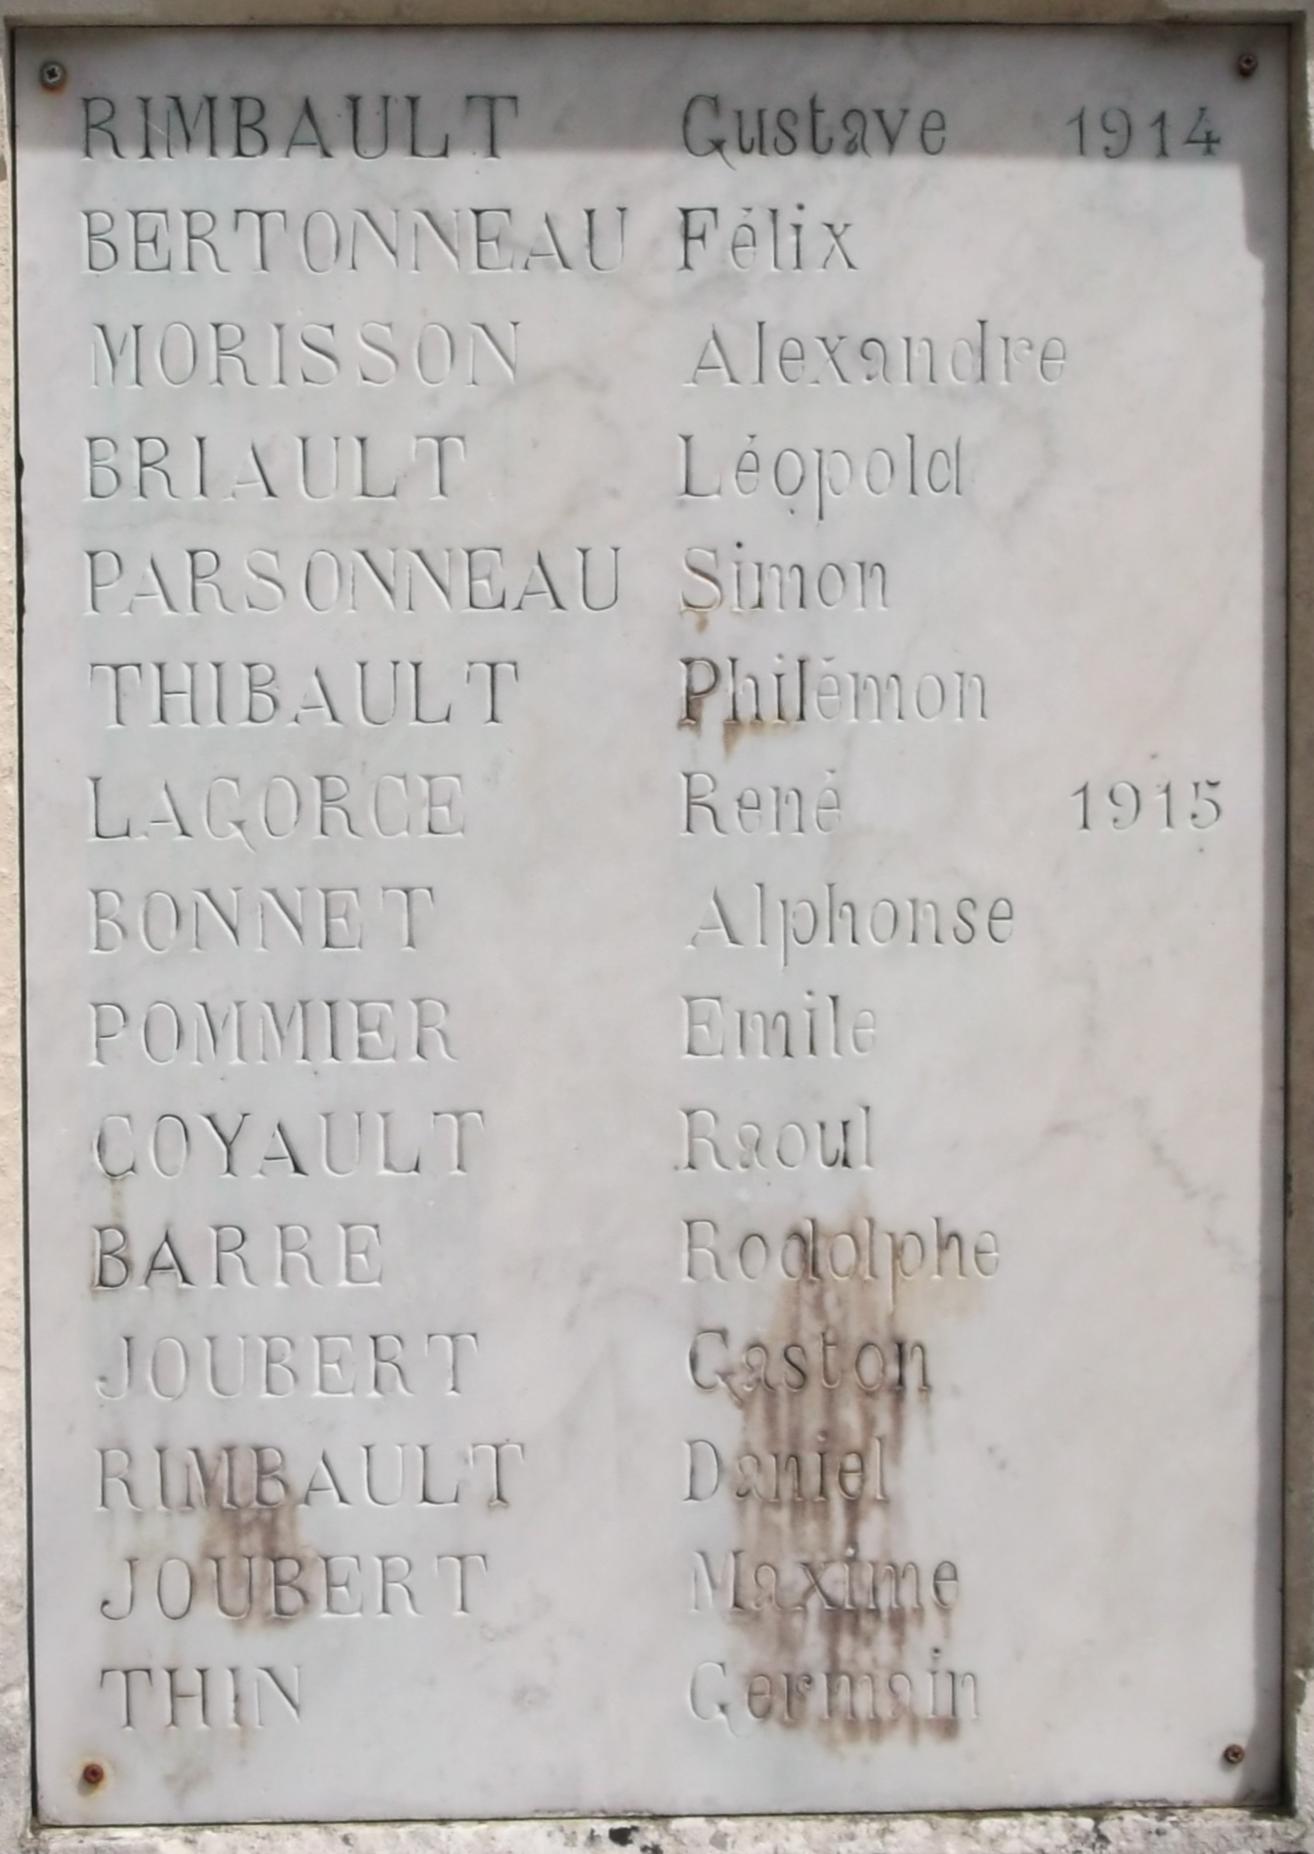 RIMBAULT Gustave 1914
BERTONNEAU Félix
MORISSON Alexandre
BRIAULT Léopold
PARSONNEAU Simon
THIBAULT Philémon
LAGORCE René 1915
BONNET Alphonse
POMMIER Emile
COYAULT Raoul
BARRE Rodolphe
JOUBERT Gaston
RIMBAULT Daniel
JOUBERT Maxime
THIN Germain